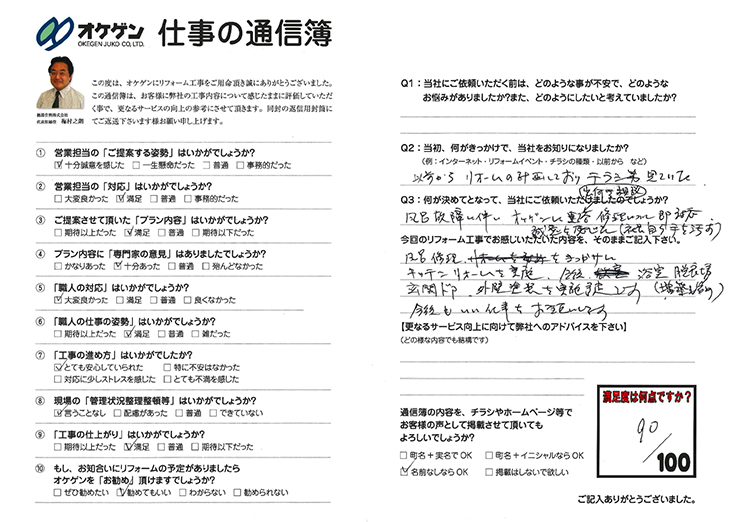 オケゲン
OKEGEN JUKO CO., LTD.
仕事の通信簿
この度は、オケゲンにリフォーム工事をご用命頂き誠にありがとうございました。
この通信簿は、お客様に弊社の工事内容について感じたままに評価していただ
く事で、更なるサービスの向上の参考にさせて頂きます。同封の返信用封筒に
てご返送下さいます様お願い申し上げます。
代表取締役 梅村之朗
① 営業担当の「ご提案する姿勢」はいかがでしょうか?
☑十分誠意を感じた □一生懸命だった □普通 □事務的だった
② 営業担当の「対応」はいかがでしょうか?
□大変良かった ☑満足 □普通 □事務的だった
③ ご提案させて頂いた「プラン内容」はいかがでしょうか?
□期待以上だった ☑満足 □普通 □期待以下だった
④ プラン内容に「専門家の意見」はありましたでしょうか?
□かなりあった ☑十分あった □普通 □殆んどなかった
⑤ 「職人の対応」はいかがでしょうか?
☑大変良かった □満足 □普通 □良くなかった
⑥ 「職人の仕事の姿勢」はいかがでしょうか?
□期待以上だった ☑満足 □普通 □雑だった
⑦ 「工事の進め方」はいかがでしたか?
☑とても安心していられた □特に不安はなかった
□対応に少しストレスを感じた □とても不満を感じた
⑧ 現場の「管理状況整理整頓等」はいかがでしょうか?
☑言うことなし □配慮があった □普通 □できていない
⑨ 「工事の仕上がり」はいかがでしょうか?
□期待以上だった ☑満足 □普通 □期待以下だった
⑩ もし、お知合いにリフォームの予定がありましたら
オケゲンを「お勧め」頂けますでしょうか?
□ぜひ勧めたい ☑勧めてもいい □わからない □勧められない
Q1:当社にご依頼いただく前は、どのような事が不安で、どのような
お悩みがありましたか?また、どのようにしたいと考えていましたか?
Q2:当初、何がきっかけで、当社をお知りになりましたか?
(例:インターネット・リフォームイベント・チラシの種類・以前から など)
以前から リホームの計画しており チラシ等 見ていた
Q3:何が決めてとなって、当社にご依頼いただけましたのでしょうか?
風呂故障に伴い オッゲンに 修理 即対応
今回のリフォーム工事でお感じいただいた内容を、そのままご記入下さい。
風呂修理 をきっかけに
キッチンリホームを実施 今後 浴室 脱衣場
玄関ドア 外壁塗装も実施予定です
今後もいい仕事をお願いします
【更なるサービス向上に向けて弊社へのアドバイスを下さい】
(どの様な内容でも結構です)
通信簿の内容を、チラシやホームページ等で
お客様の声として掲載させて頂いても
よろしいでしょうか?
□町名+実名でOK □町名+イニシャルならOK
☑名前なしならOK □掲載はしないで欲しい
満足度は何点ですか?
90
/100
ご記入ありがとうございました。